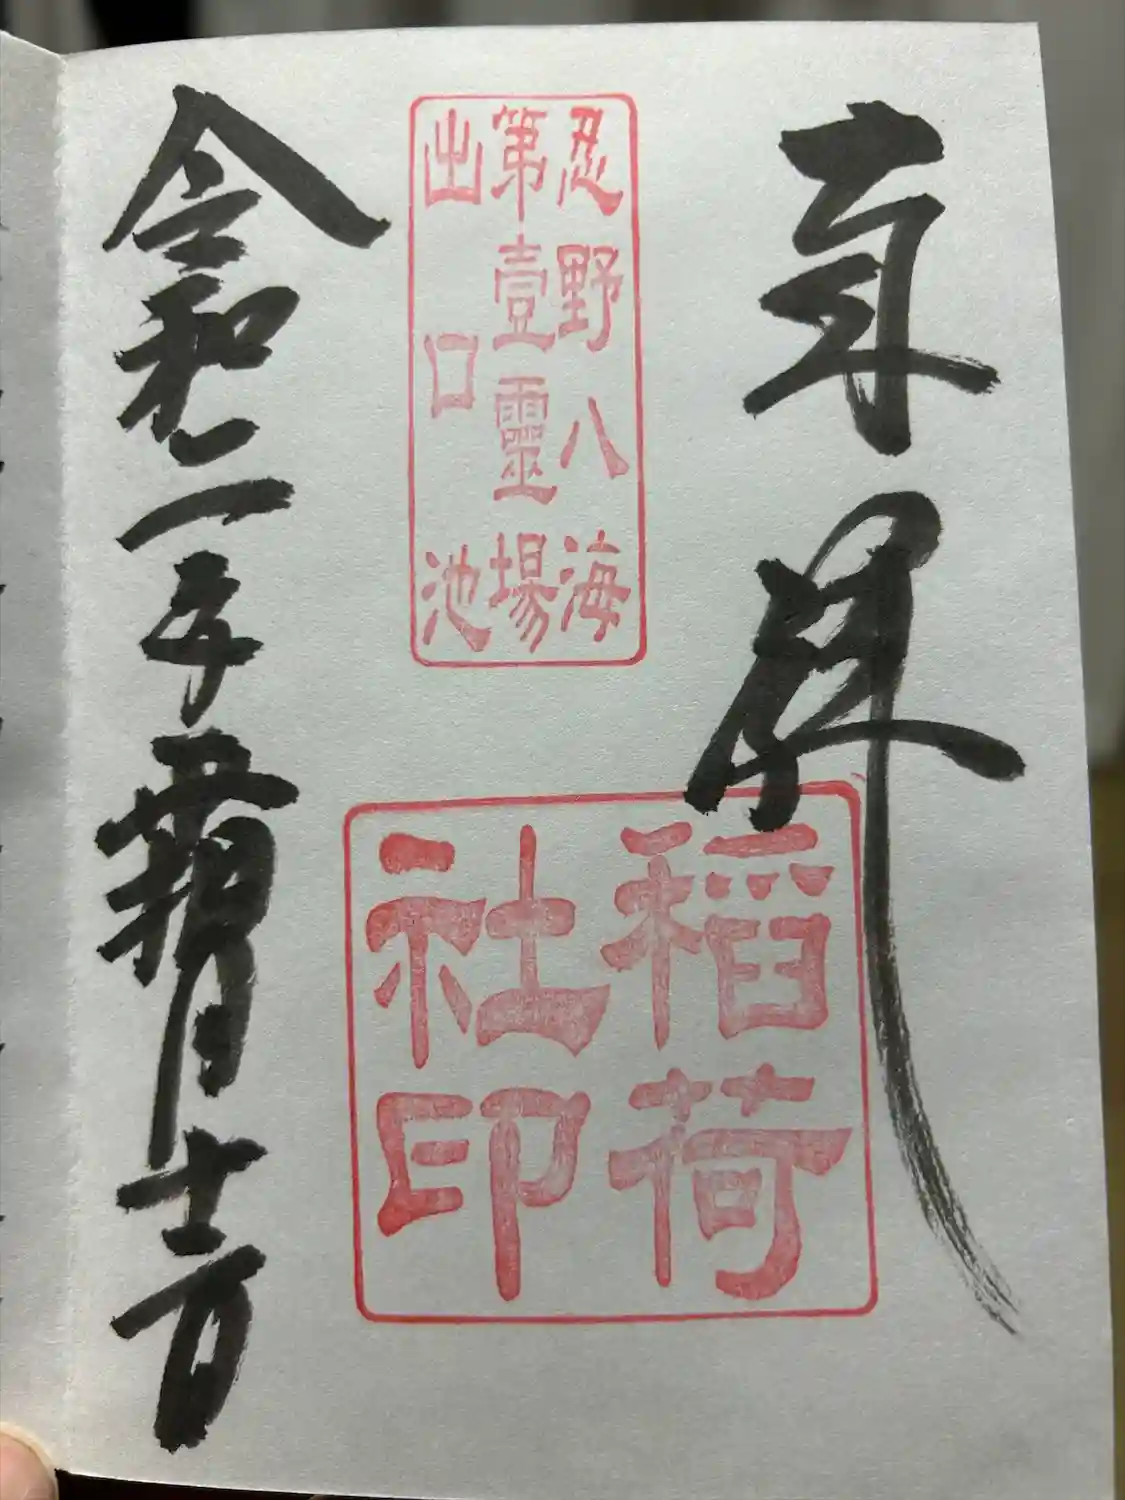 奉拝
忍野八海
第壹靈場
出口池
稲荷
社印
令和二年霜月十一日